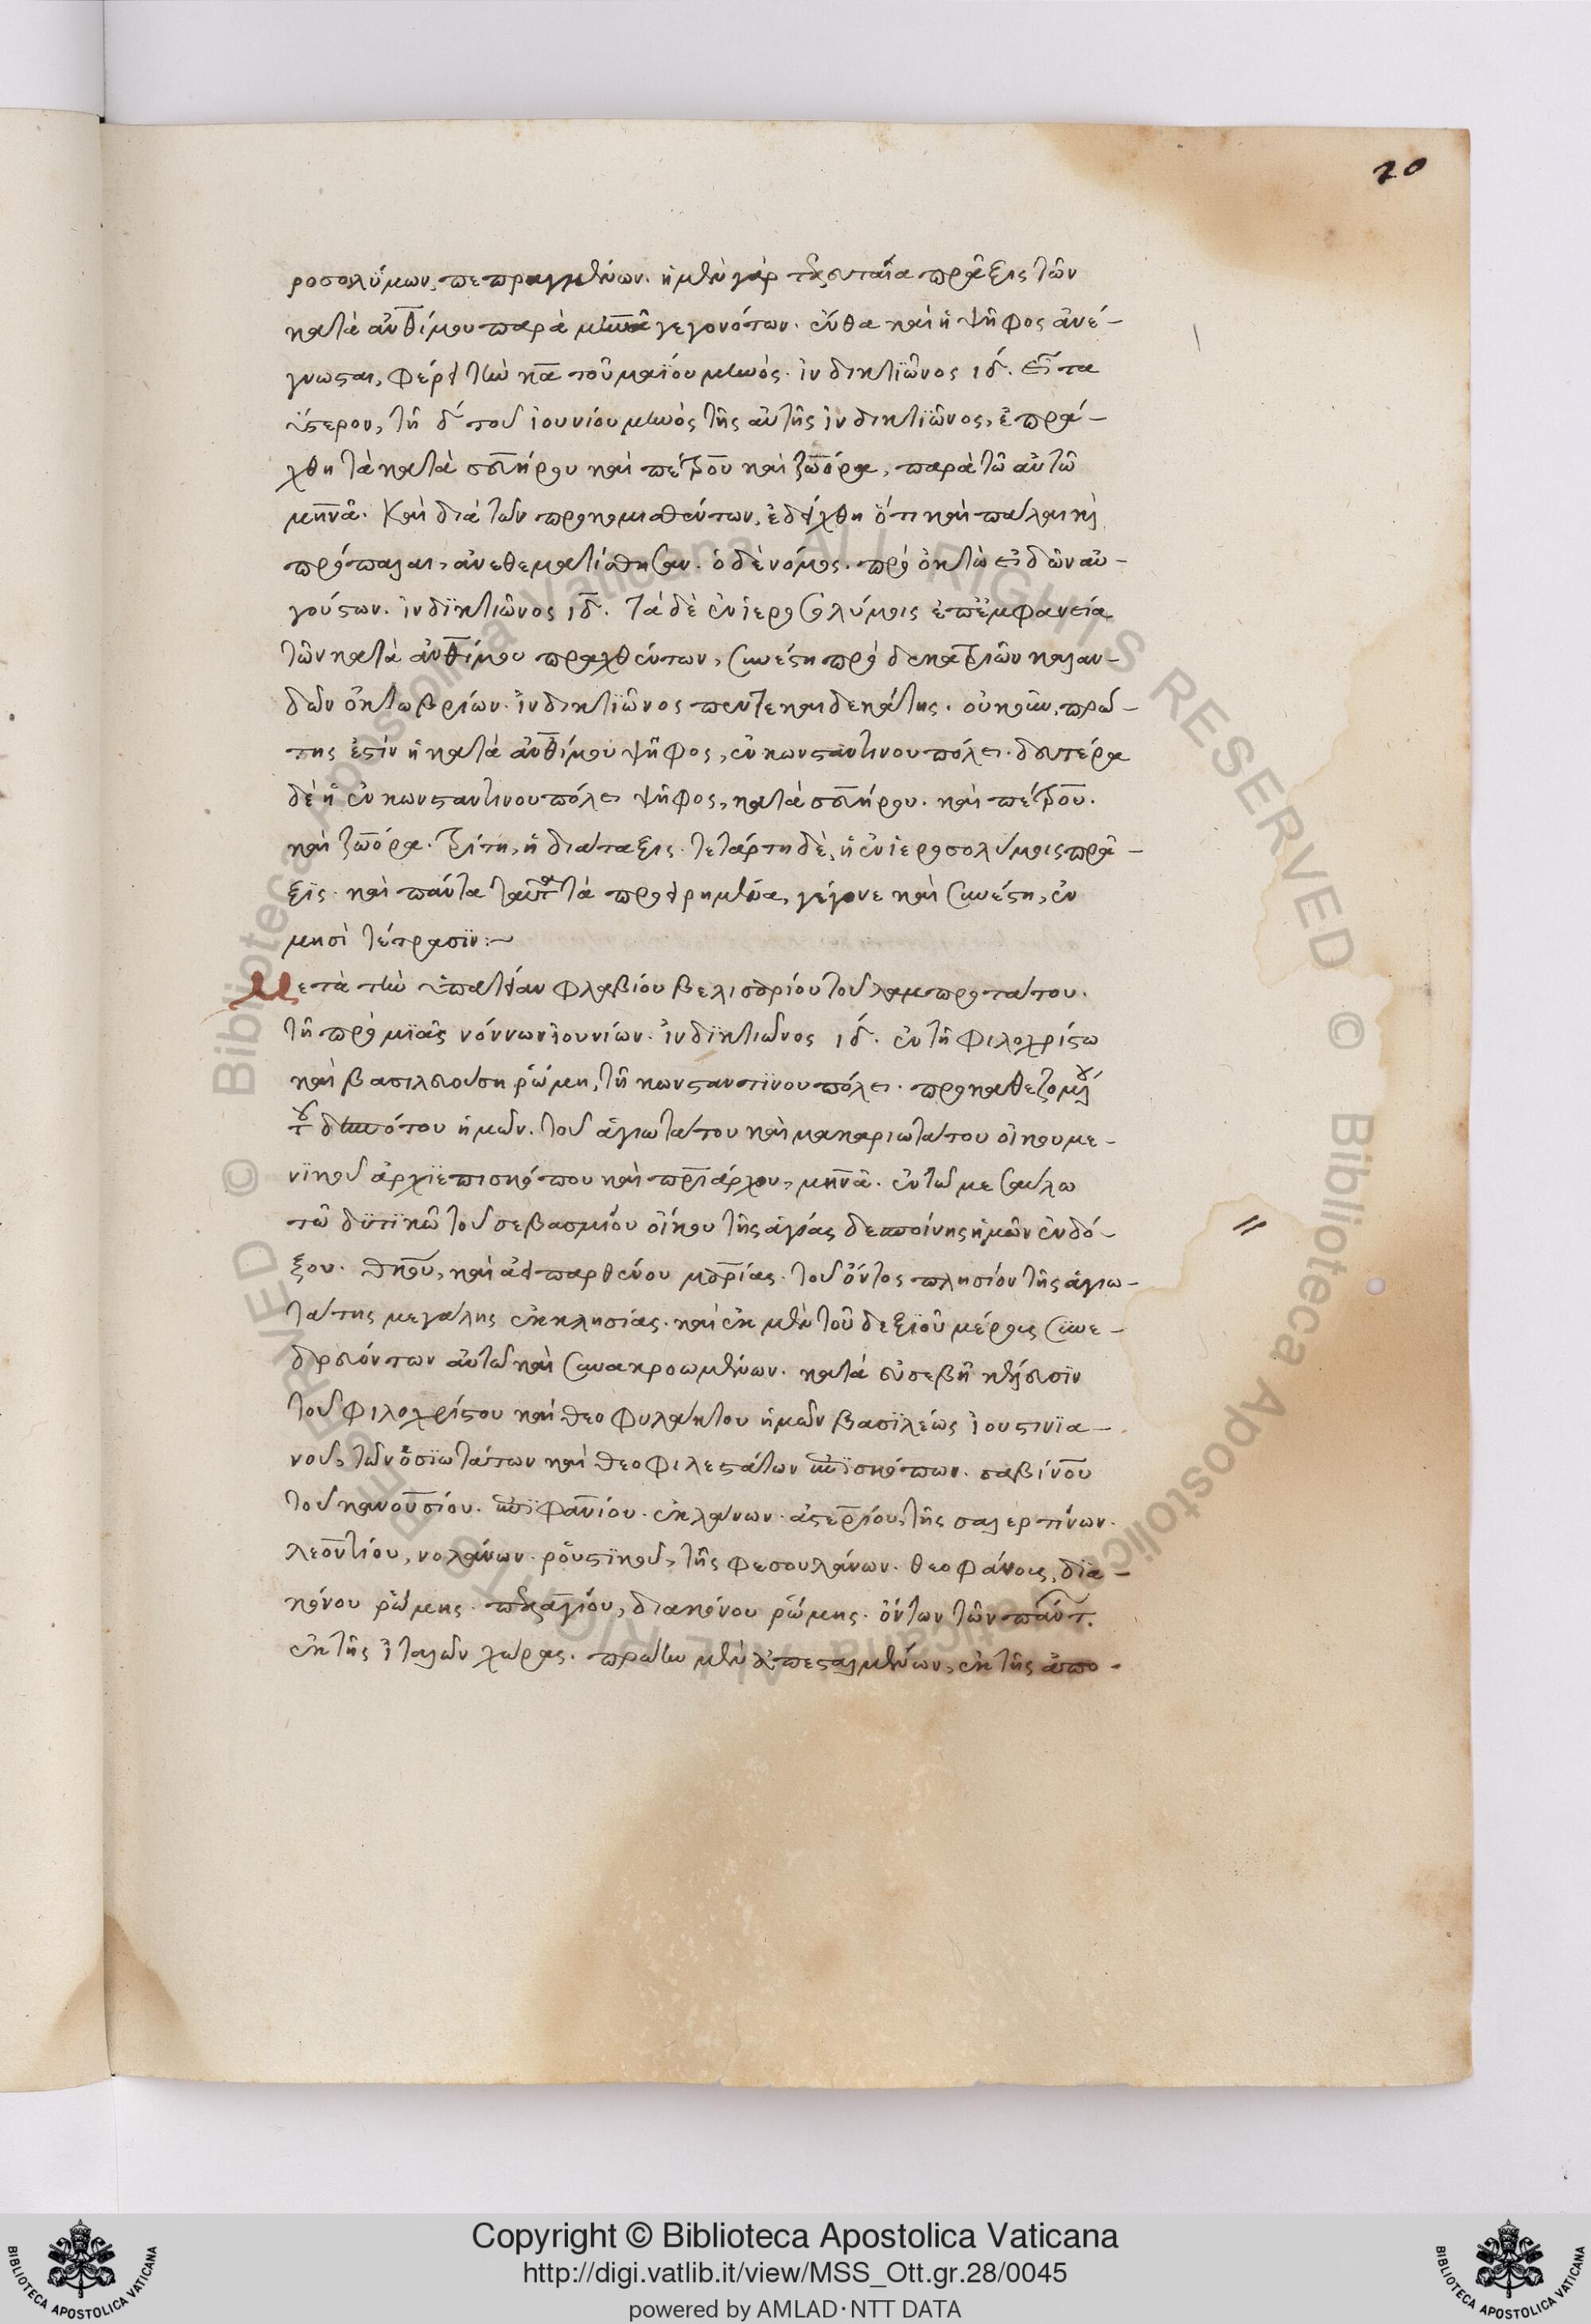 20
ροσολύμων, πεπραγμένων. ἡ μὲν γὰρ τελευταία πρᾶξις τῶν
κατὰ ἀνθίμου παρὰ μηνᾶ γεγονότων. ἔνθα καὶ ἡ ψῆφος ἀνέ-
γνωσται, φέρει τὴν κα τοῦ μαΐου μηνὸς. ἰνδικτιῶνος ιδ. εἶτα
ὕστερον, τῆ δ τοῦ ἰουνίου μηνὸς τῆς αὐτῆς ἰνδικτιῶνος, ἐπρά-
χθη τὰ κατὰ σευήρου καὶ πέτρου καὶ ζωόρα, παρὰ τῶ αὐτῶ
μηνᾶ. καὶ διὰ τῶν προκομισθέντων, ἐδείχθη ὅτι καὶ πάλαι καὶ
πρόπαλαι, ἀνεθεματίσθησαν. ὁ δὲ νόμος. πρὸ ὀκτὼ εἰδῶν αὐ-
γούστων. ἰνδικτιῶνος ιδ. τὰ δὲ ἐν ἱεροσολύμοις ἐπ' ἐμφανεία
τῶν κατὰ ἀνθίμου πραχθέντων, συνέστη πρὸ δεκατριῶν καλαν-
δῶν ὀκτωβρίων. ἰνδικτιῶνος πεντεκαιδεκάτης. οὐκοῦν, πρώ-
της ἐστὶν ἡ κατὰ ἀνθίμου ψῆφος, ἐν κωνσταντινουπόλει. δευτέρα
δὲ ἡ ἐν κωνσταντινουπόλει ψῆφος, κατὰ σευήρου. καὶ πέτρου.
καὶ ζωόρα. τρίτη, ἡ διάταξις. τετάρτη δὲ, ἡ ἐν ἱεροσολύμοις πρᾶ-
ξις. καὶ πάντα ταῦτα τὰ προειρημένα, γέγονε καὶ συνέστη, ἐν
μησὶ τέτρασιν:~
Μετὰ τὴν ὑπατείαν φλαβίου βελισαρίου τοῦ λαμπροτάτου.
τῆ πρὸ μιᾶς νόννων ἰουνίων. ἰνδικτιῶνος ιδ. ἐν τῆ φιλοχρίστω
καὶ βασιλευούση ῥώμη, τῆ κωνσταντινουπόλει. προκαθεζομένου
τοῦ δεσπότου ἡμῶν. τοῦ ἁγιωτάτου καὶ μακαριωτάτου οἰκουμε-
νικοῦ ἀρχιεπισκόπου καὶ πατριάρχου, μηνᾶ. ἐν τῶ μεσαύλω
τῶ δυτικῶ τοῦ σεβασμίου οἴκου τῆς ἁγίας δεσποίνης ἡμῶν ἐνδό-
ξου. θεοτόκου, καὶ ἀειπαρθένου μαρίας. τοῦ ὄντος πλησίον τῆς ἁγιω-
τάτης μεγάλης ἐκκλησίας. καὶ ἐκ μὲν τοῦ δεξιοῦ μέρους συνε-
δρευόντων αὐτῶ καὶ συνακροωμένων. κατὰ εὐσεβῆ κέλευσιν
τοῦ φιλοχρίστου καὶ θεοφυλάκτου ἡμῶν βασιλέως ἰουστινια-
νοῦ, τῶν ὁσιωτάτων καὶ θεοφιλεστάτων ἐπισκόπων. σαβίνου
τοῦ κανουσίου. ἐπιφανίου. ἐκλάνων. ἀστερίου, τῆς σαλερτίνων.
λεοντίου, νολάνων. ῥουστικοῦ, τῆς φεσουλάνων. θεοφάνους, δια-
κόνου ῥώμης. πελαγίου, διακόνου ῥώμης. ὄντων τῶν πάντ.
ἐκ τῆς ἰταλῶν χώρας. πρώην μὲν ἀπεσταλμένων, ἐκ τῆς ἀπο-
Copyright © Biblioteca Apostolica Vaticana
http://digi.vatlib.it/view/MSS_Ott.gr.28/0045
powered by AMLAD·NTT DATA
BIBLIOTECA APOSTOLICA VATICANA
BIBLIOTECA APOSTOLICA VATICANA